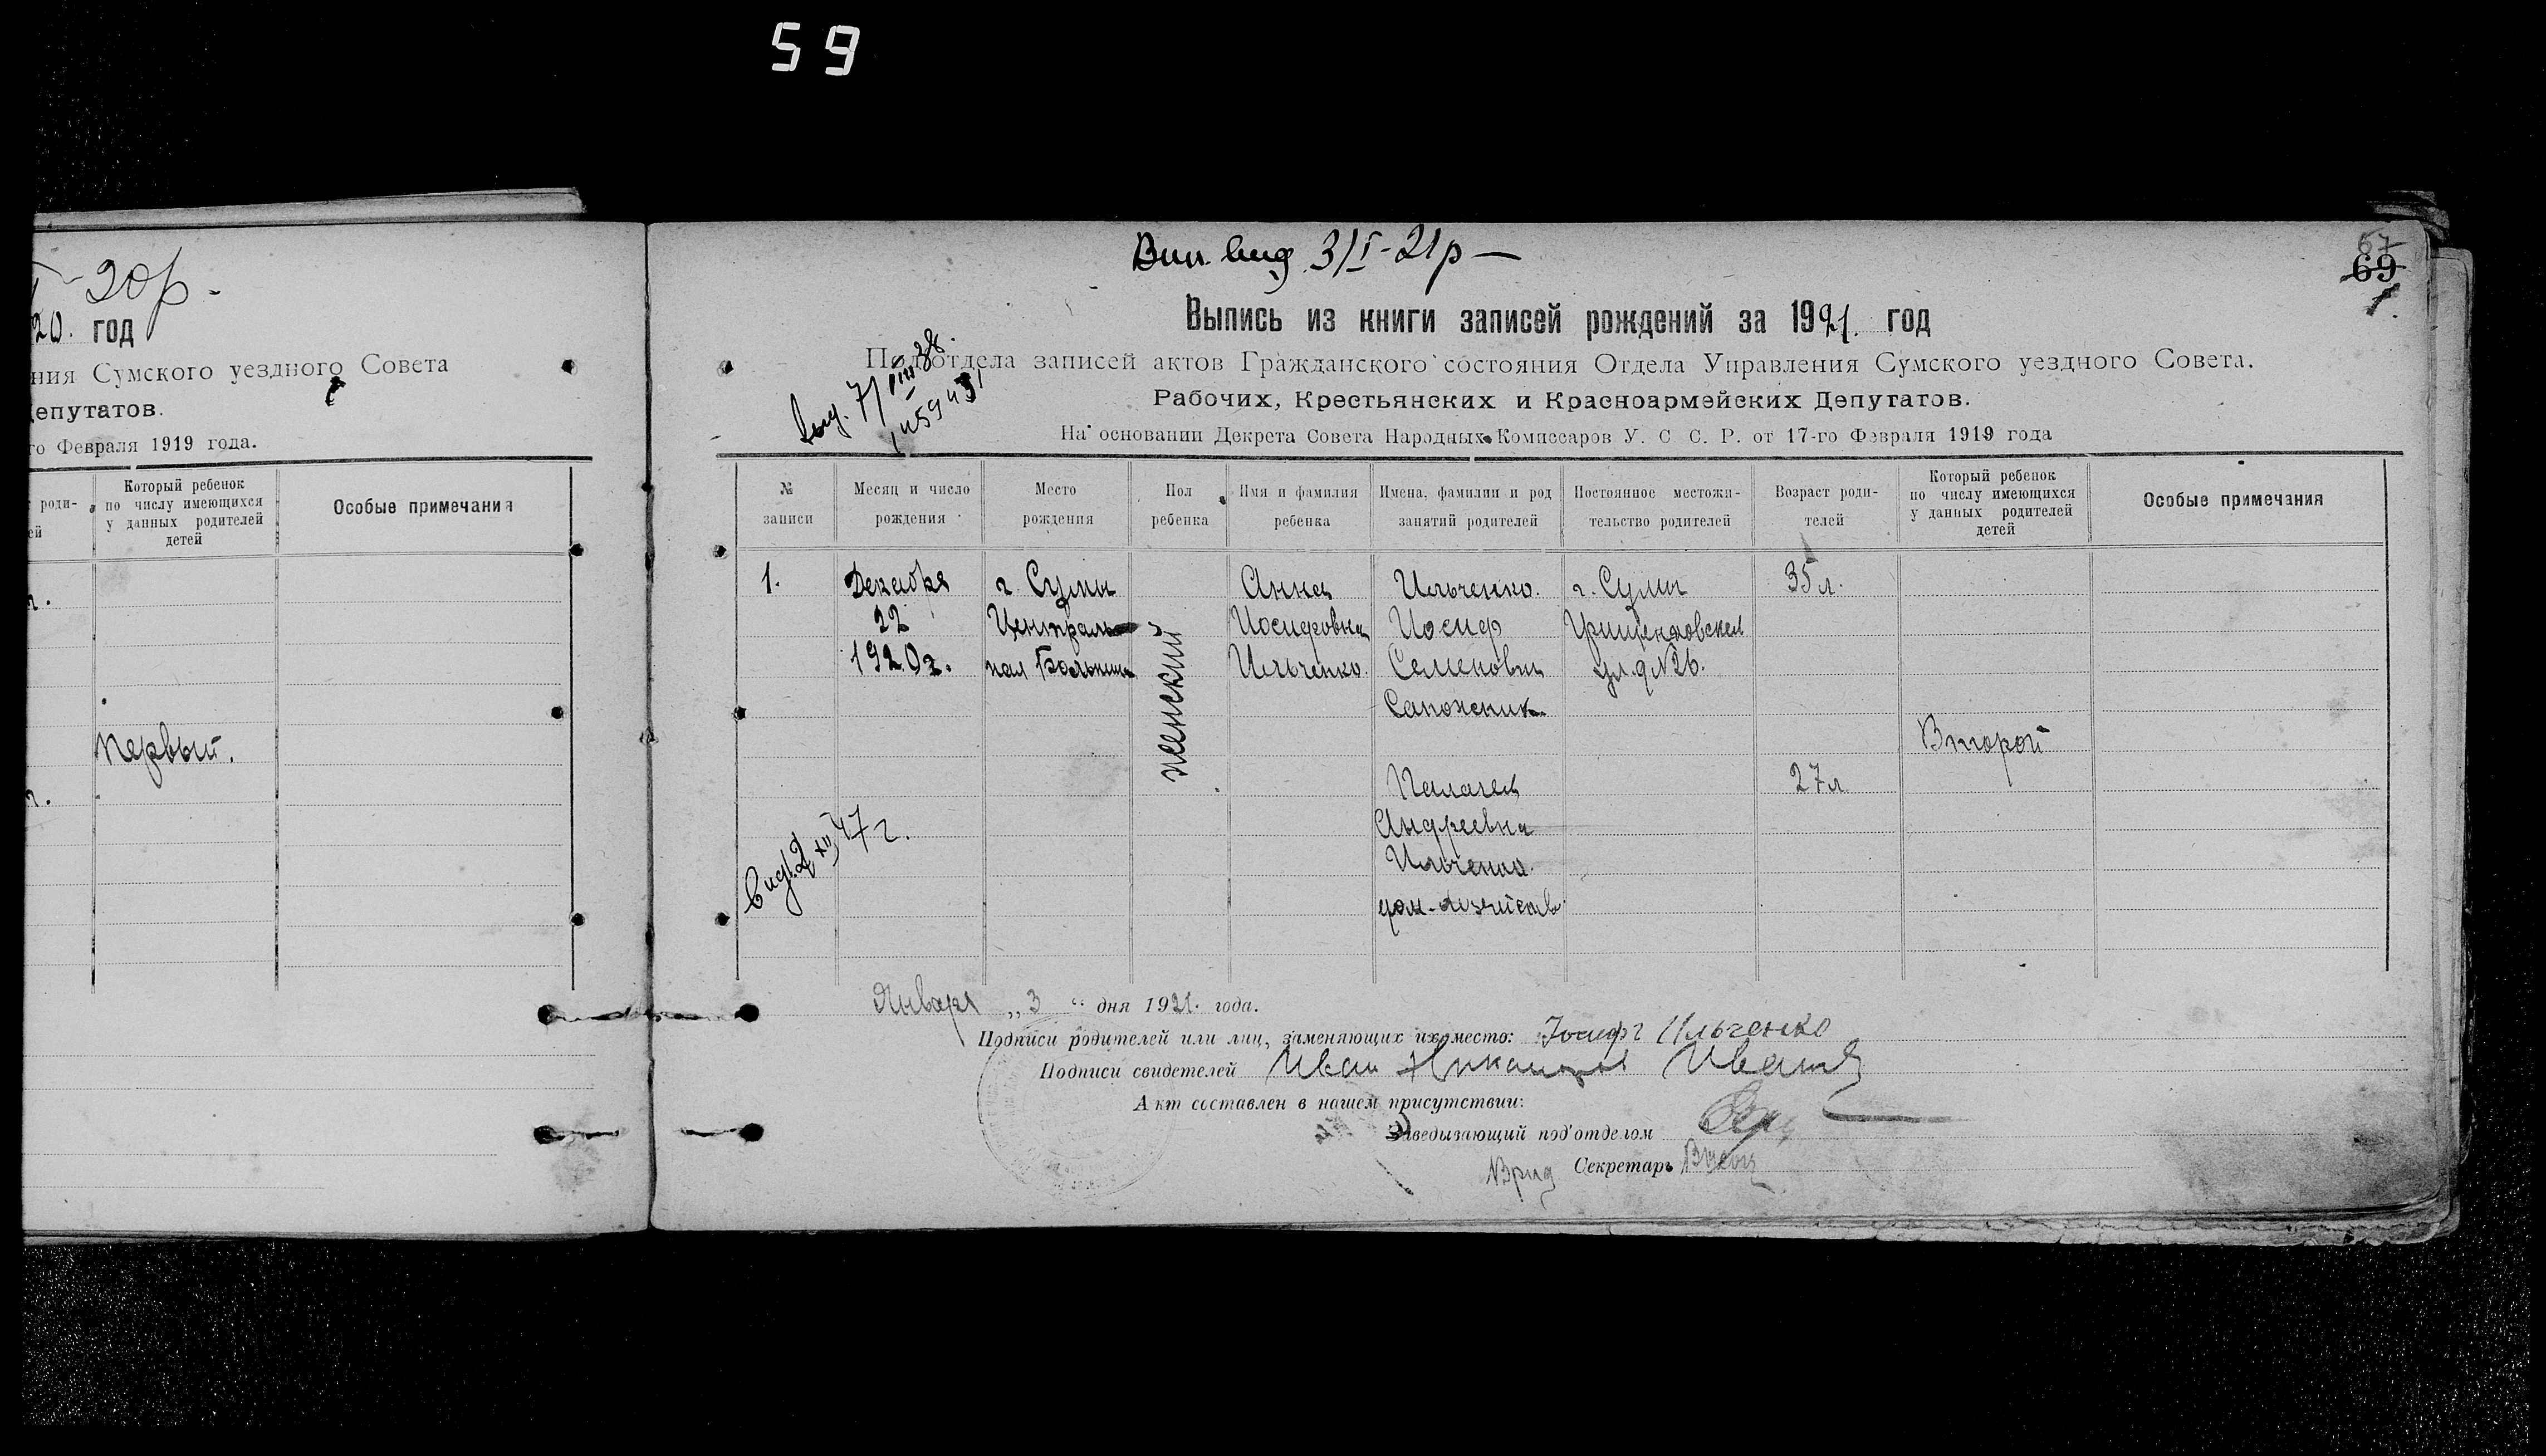 59
20р.
20. год
ния Сумского уездного Совета
депутатов.
го Февраля 1919 года.
роди-
ей
Который ребенок
по числу имеющихся
у данных родителей
детей
Особые примечания
г.
первый.
г.
Вип. вид. 3/I-21р —
67
69
Выпись из книги записей рождений за 1921. год
Подотдела записей актов Гражданского состояния Отдела Управления Сумского уездного Совета.
Рабочих, Крестьянских и Красноармейских Депутатов.
На основании Декрета Совета Народных Комиссаров У. С. С. Р. от 17-го Февраля 1919 года
№
записи
Месяц и число
рождения
Место
рождения
Пол
ребенка
Имя и фамилия
ребенка
Имена, фамилии и род
занятий родителей
Постоянное местожи-
тельство родителей
Возраст роди-
телей
Который ребенок
по числу имеющихся
у данных родителей
детей
Особые примечания
1.
Декабря
22
1920г.
г. Сумы
Централь
ная Больница
женский
Анна
Иосифовна
Ильченко.
Ильченко.
Иосиф
Семенович
Сапожник
Пелагея
Андреевна
Ильченко.
г. Сумы
ул. д №26.
35 л.
27 л.
Второй
Вид. 2/XII 47 г.
Января „3“ дня 1921. года.
Подписи родителей или лиц, заменяющих их место: Іосифъ Ильченко
Подписи свидетелей Иван
Акт составлен в нашем присутствии:
Заведывающий под'отделом
Врид Секретарь